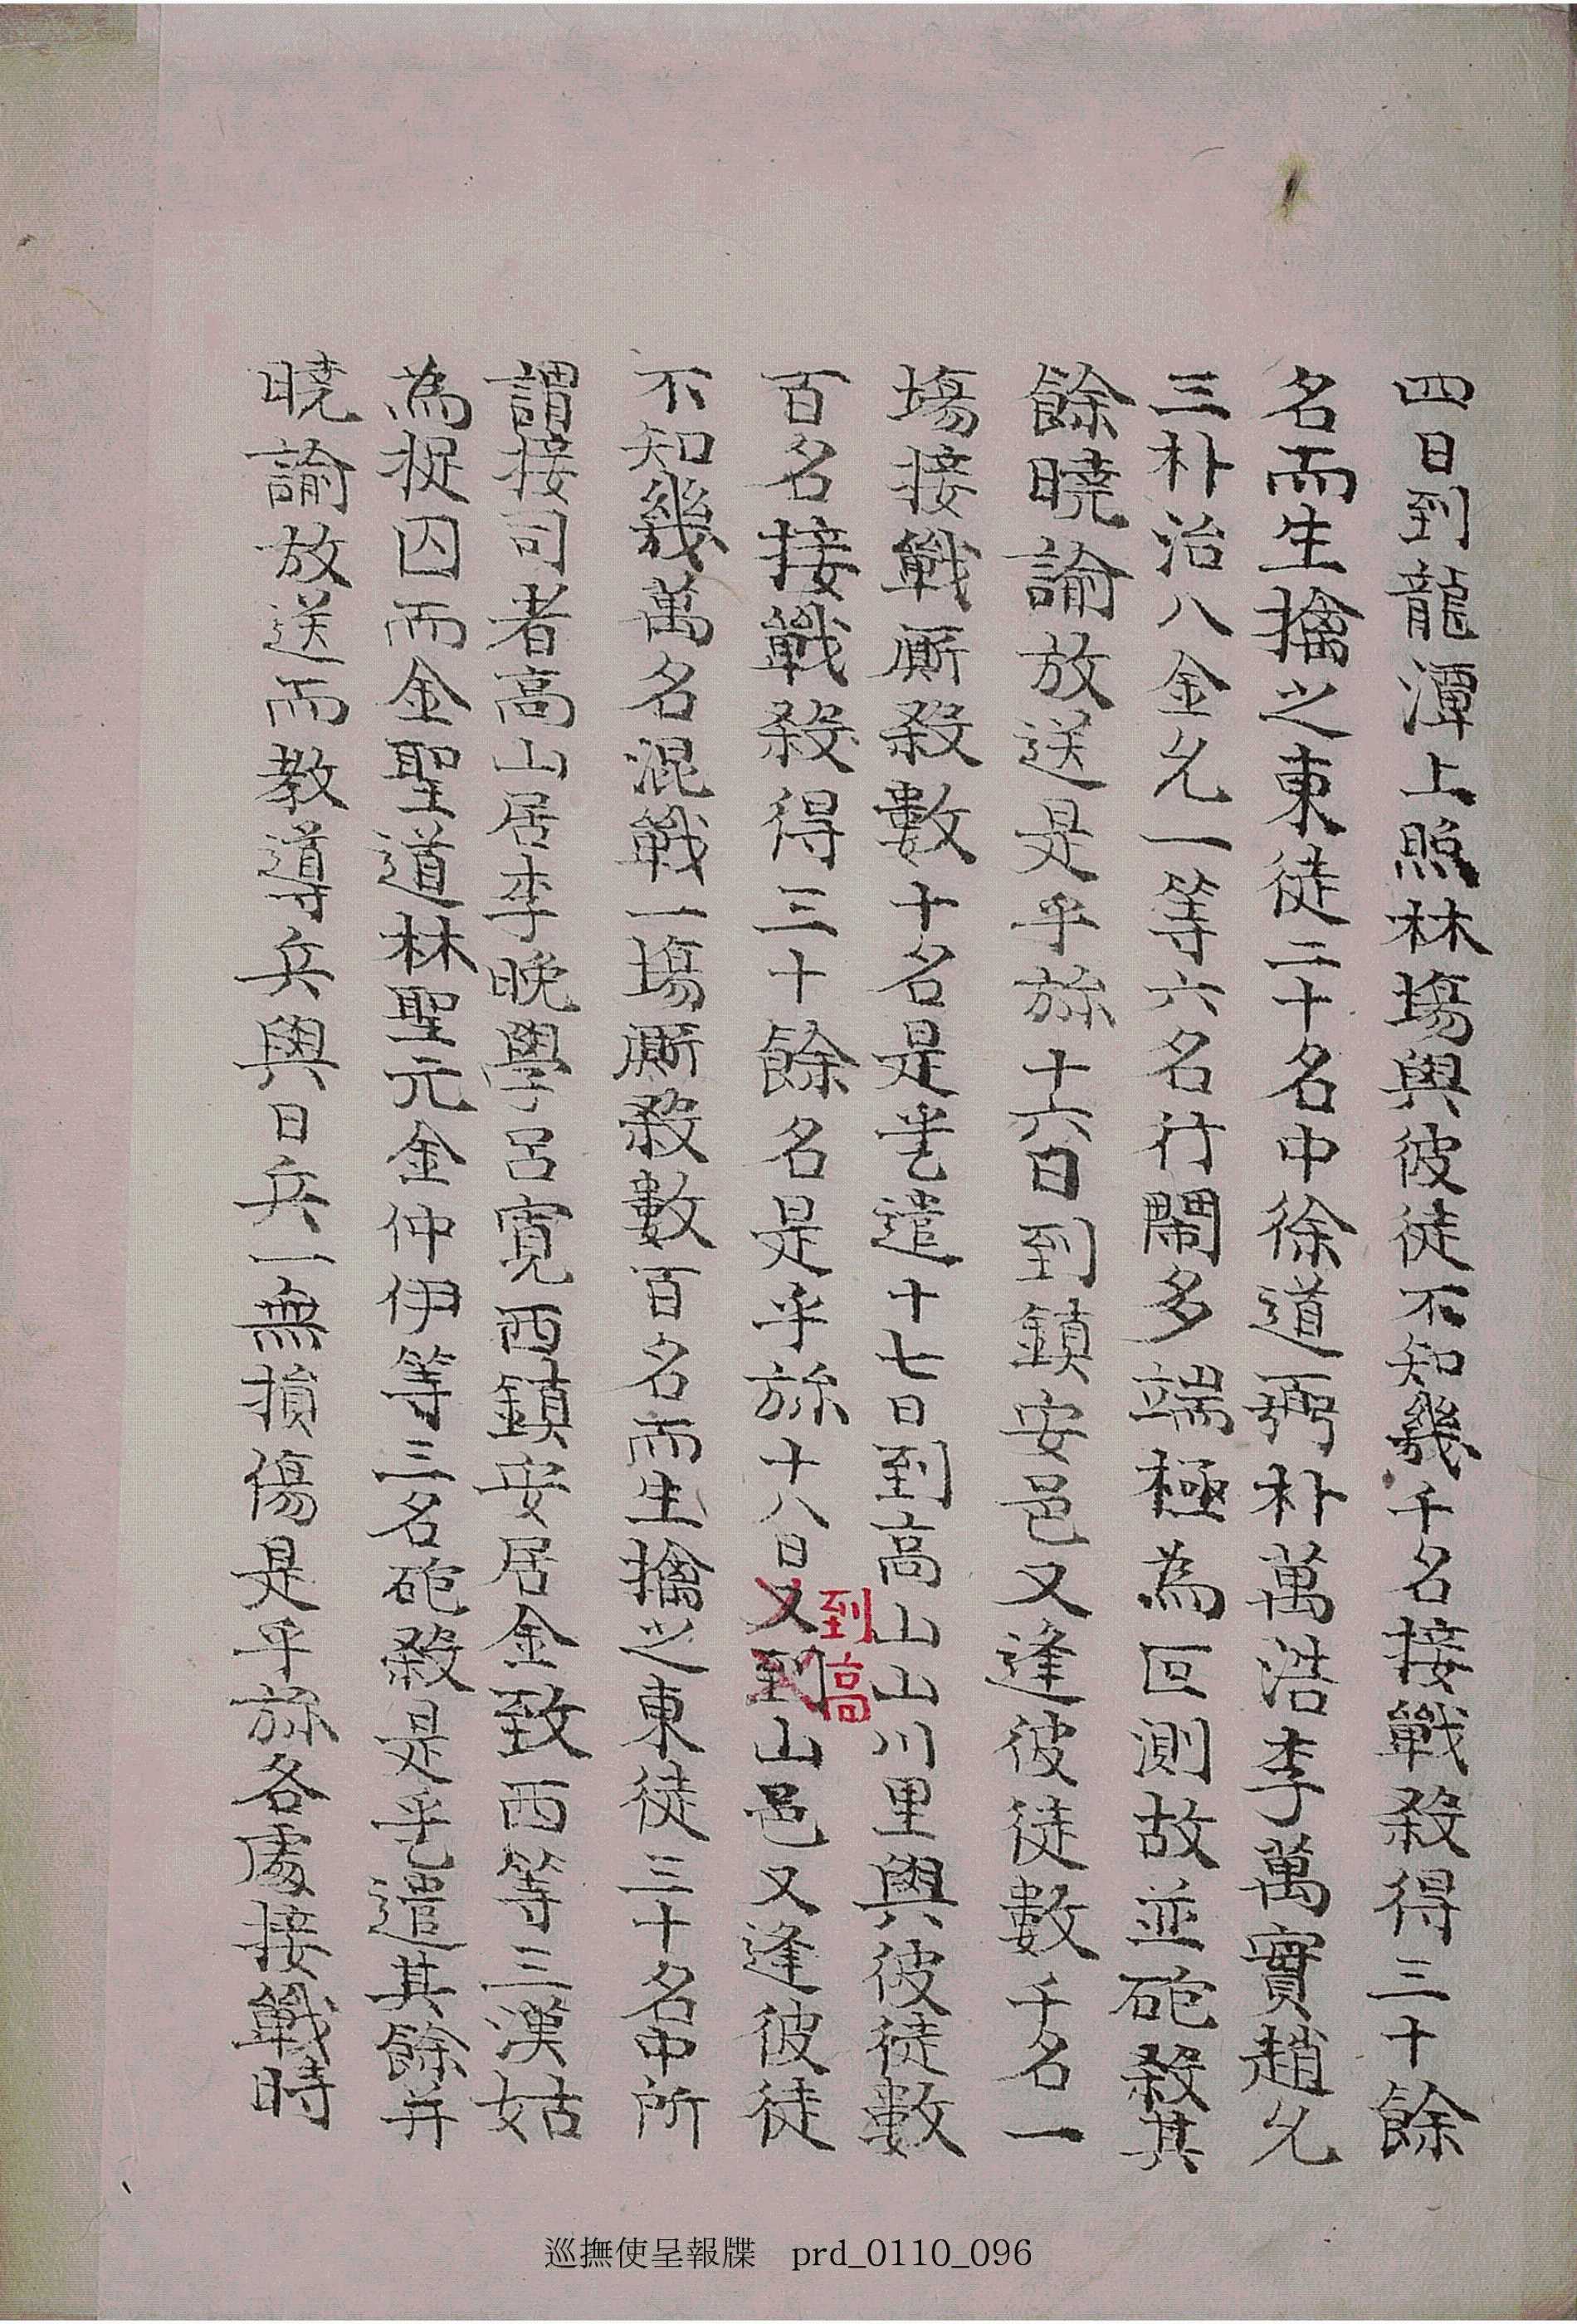 四日到龍潭上照林塲與彼徒不知幾千名接戰殺得三十餘
名而生擒之東徒二十名中徐道弼朴萬浩李萬實趙允
三朴治八金允一等六名行鬧多端極為叵測故並砲殺其
餘曉諭放送是乎旀十六日到鎭安邑又逢彼徒數千名一
塲接戰厮殺數十名是乎遣十七日到高山山川里與彼徒數
百名接戰殺得三十餘名是乎旀十八日又到山邑又逢彼徒
到高
不知幾萬名混戰一塲厮殺數百名而生擒之東徒三十名中所
謂接司者高山居李晩學呂寬西鎭安居金致西等三漢姑
為捉囚而金聖道林聖元金仲伊等三名砲殺是乎遣其餘并
曉諭放送而教導兵與日兵一無損傷是乎旀各處接戰時
巡撫使呈報牒 prd_0110_096